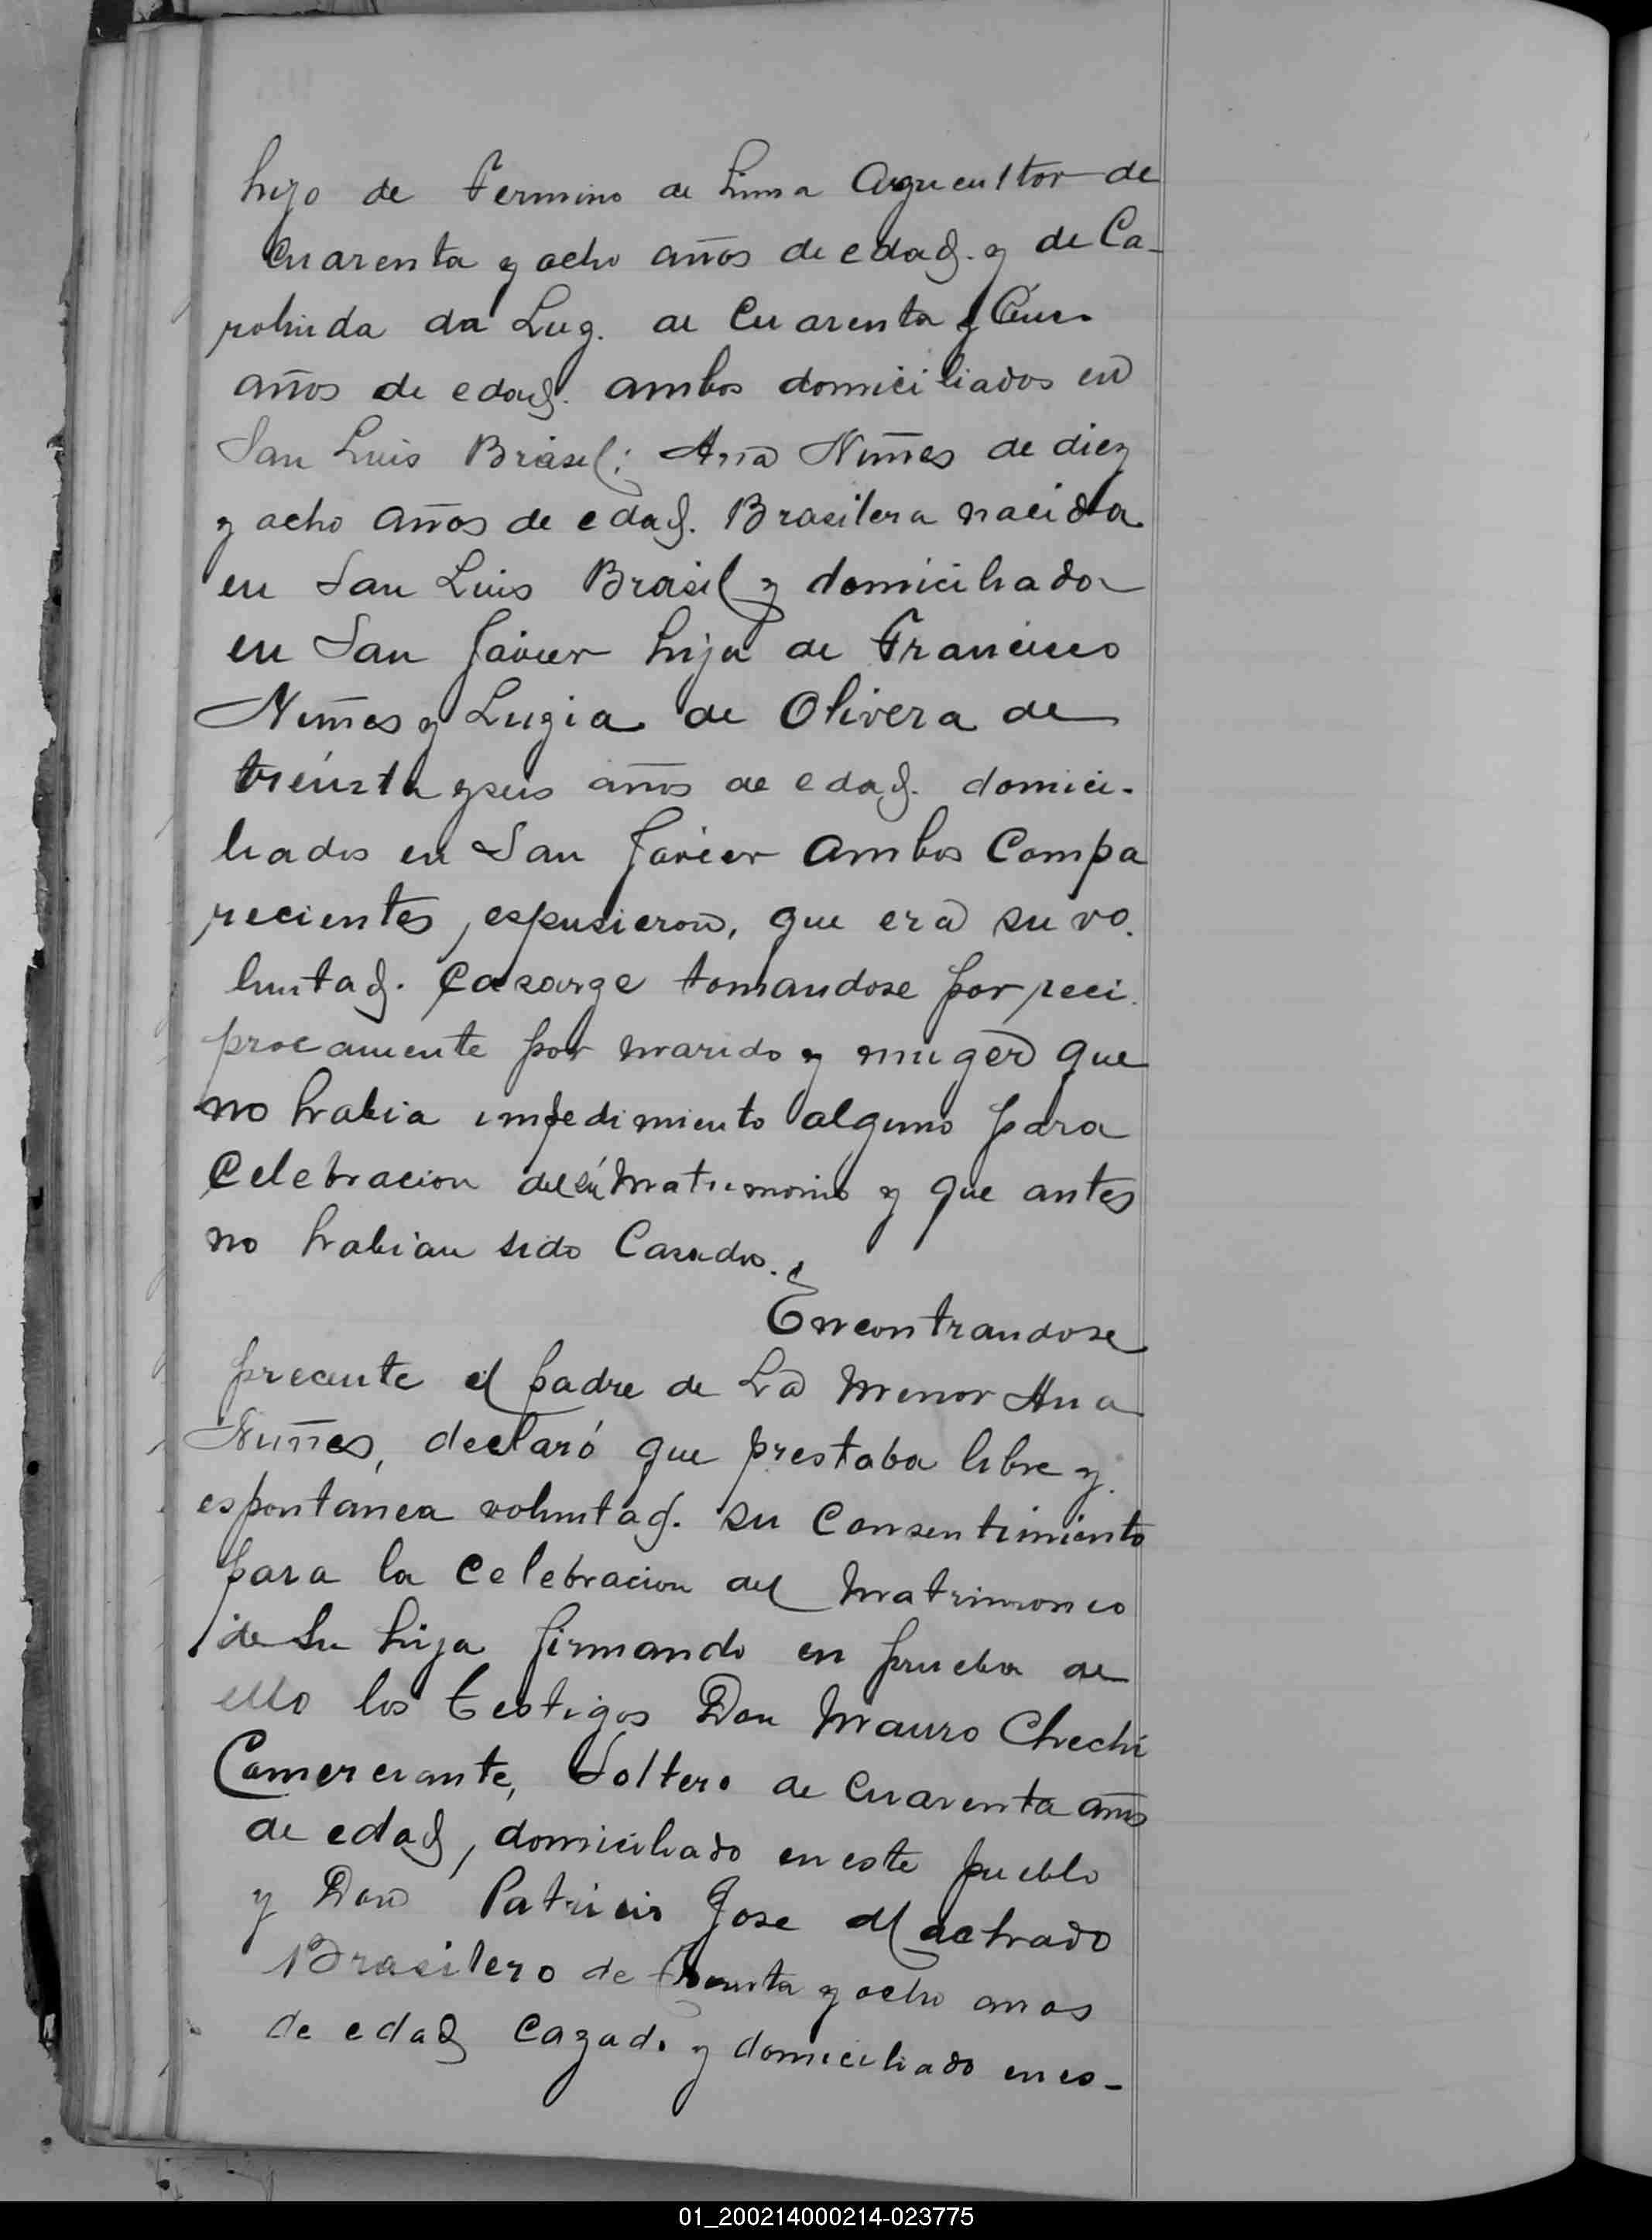 hijo de Fermino de Lima Agricultor de
Cuarenta y ocho años de edad. y de Ca-
rolinda da Luz. de Cuarenta y Cinco
años de edad. ambos domiciliados en
San Luis Brasil; Ana Nuñes de diez
y ocho años de edad. Brasilera nacida
en San Luis Brasil y domiciliada
en San Javier hija de Francisco
Nuñes y Luzia de Olivera de
treinta y seis años de edad. domici-
liados en San Javier ambos Compa
recientes, espusieron, que era su vo.
luntad. Casarge tomandose por reci.
procamente por marido y muger que
no habia impedimiento alguno para
Celebracion del Matrimonio y que antes
no habian sido Casados.
Encontrandose
precente el padre de La menor Ana
Nuñes, declaró que prestaba libre y
espontanea voluntad. su Consentimiento
para la Celebracion del Matrimonio
de su hija firmando en prueba de
ello los testigos Don Mauro Chechi
Comerciante, Soltero de Cuarenta años
de edad, domiciliado en este pueblo
y Don Patricio Jose Machado
Brasilero de treinta y ocho anos
de edad Cazado y domiciliado en es-
01_200214000214-023775